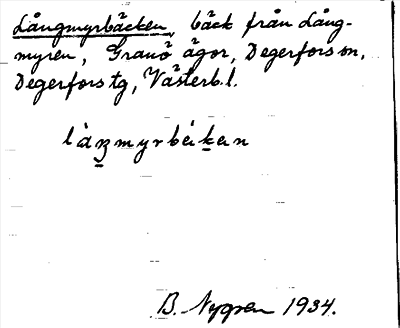 Långmyrbäcken, bäck från Lång-
myren, Granö ägor, Degerfors sn,
Degerfors tg, Västerb. l.
B. Nygren 1934.